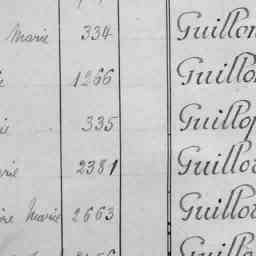 Marie 334 Guillon
1266 Guillo
335 Guillop
2381 Guillo
Marie 2663 Guillo
Guillo